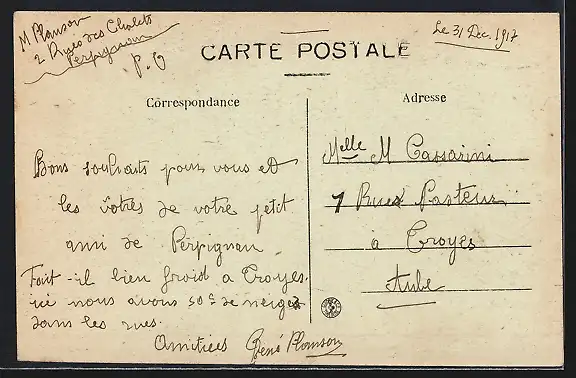 M Planson
2 Rue des Chalets
Perpignan
P. O
Le 31 Dec. 1917
CARTE POSTALE
Correspondance
Adresse
Bons souhaits pour vous et
les vôtres de votre petit
ami de Perpignan
Fait-il bien froid a Troyes.
ici nous avons 50c de neige
dans les rues.
Amitiées René Planson
Melle M Cassarini
7 Rue Pasteur
a Troyes
Aube